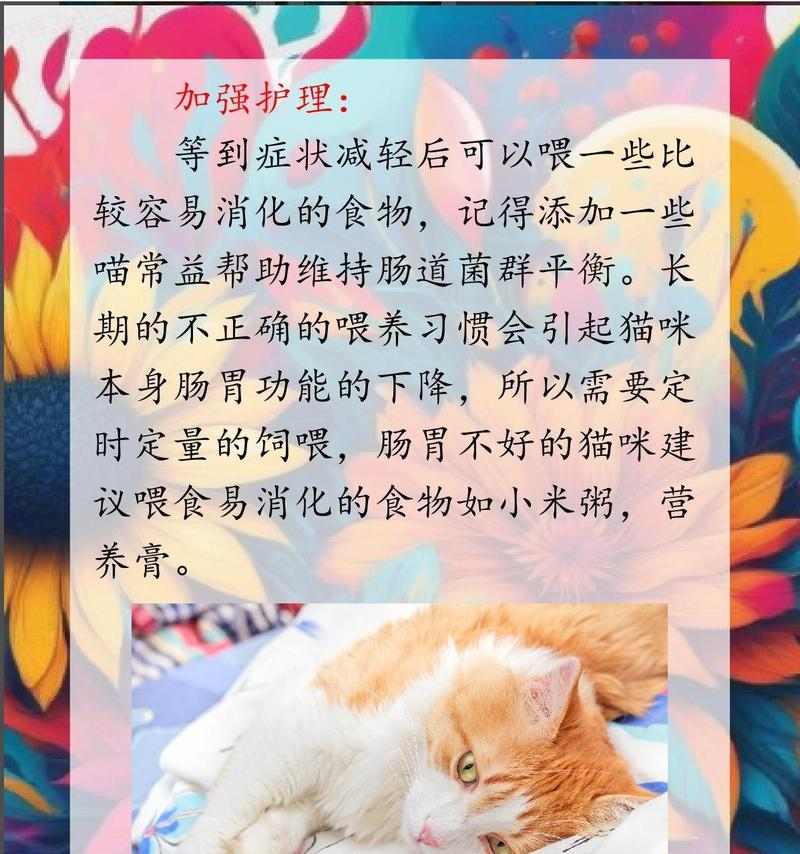 加强护理：
等到症状减轻后可以喂一些比
较容易消化的食物，记得添加一些
喵常益帮助维持肠道菌群平衡。长
期的不正确的喂养习惯会引起猫咪
本身肠胃功能的下降，所以需要定
时定量的饲喂，肠胃不好的猫咪建
议喂食易消化的食物如小米粥，营
养膏。